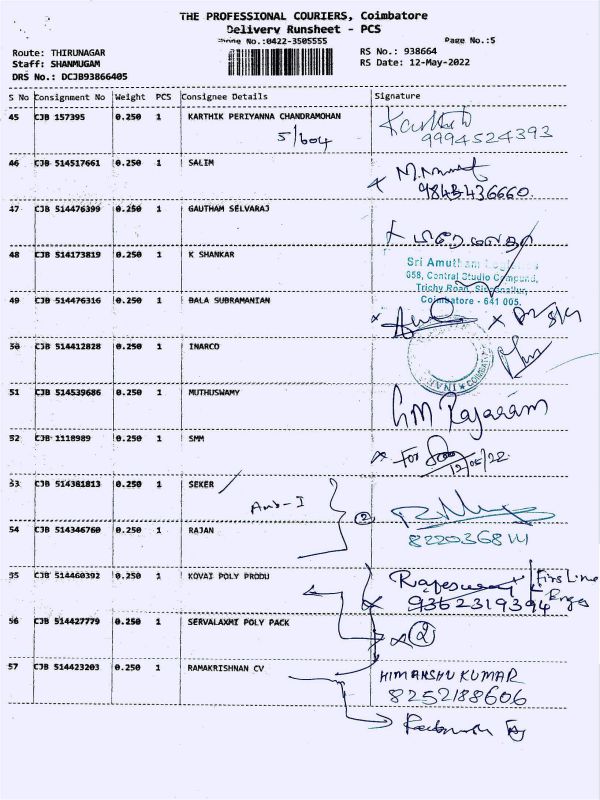 THE PROFESSIONAL COURIERS, Coimbatore
Delivery Runsheet - PCS
Phone No.:0422-3505555
Page No.:5
Route: THIRUNAGAR
Staff: SHANMUGAM
DRS No.: DCJB93866405
RS No.: 938664
RS Date: 12-May-2022
S No Consignment No Weight PCS Consignee Details Signature
45 CJB 157395 0.250 1 KARTHIK PERIYANNA CHANDRAMOHAN
5/604
9994524393
46 CJB 514517661 0.250 1 SALIM
9843436660.
47 CJB 514476399 0.250 1 GAUTHAM SELVARAJ
48 CJB 514173819 0.250 1 K SHANKAR
Sri Amutham Logistics
658, Central Studio Compund,
Trichy Road, Singanallur,
Coimbatore - 641 005.
49 CJB 514476316 0.250 1 BALA SUBRAMANIAN
50 CJB 514412828 0.250 1 INARCO
51 CJB 514539686 0.250 1 MUTHUSWAMY
GM Rajaram
52 CJB 1118989 0.250 1 SMM
For
12/05/22
53 CJB 514381813 0.250 1 SEKER
2
54 CJB 514346760 0.250 1 RAJAN
8220368111
55 CJB 514460392 0.250 1 KOVAI POLY PRODU
Rajeswary
9362319394
First Line
56 CJB 514427779 0.250 1 SERVALAXMI POLY PACK
2
57 CJB 514423203 0.250 1 RAMAKRISHNAN CV
HIMANSHU KUMAR
8252188606